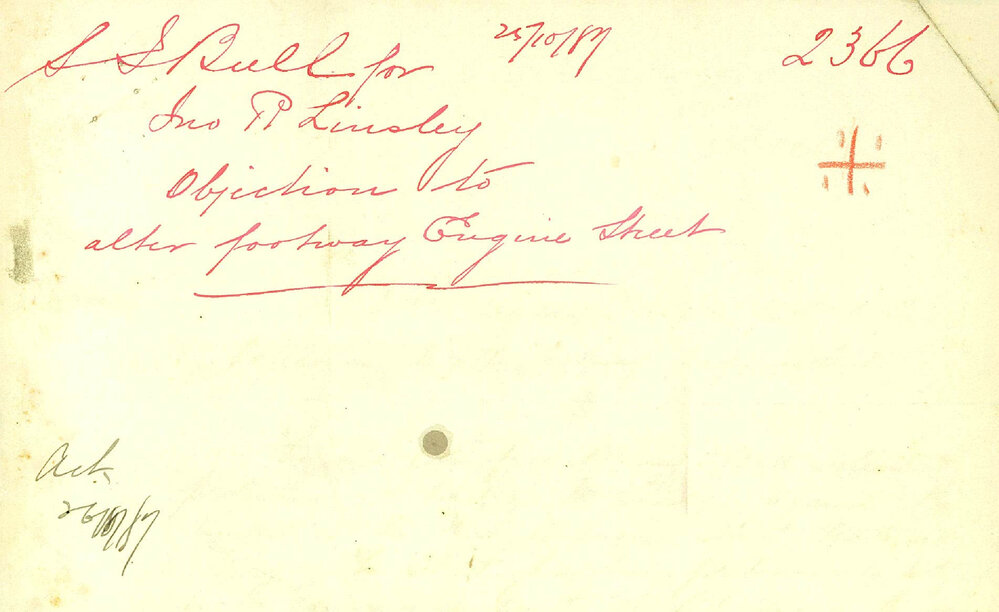 S S Bull for 25/10/87 2366
Jno R Linsley
Objection to
alter footway Engine Street
Ack.
26/10/87